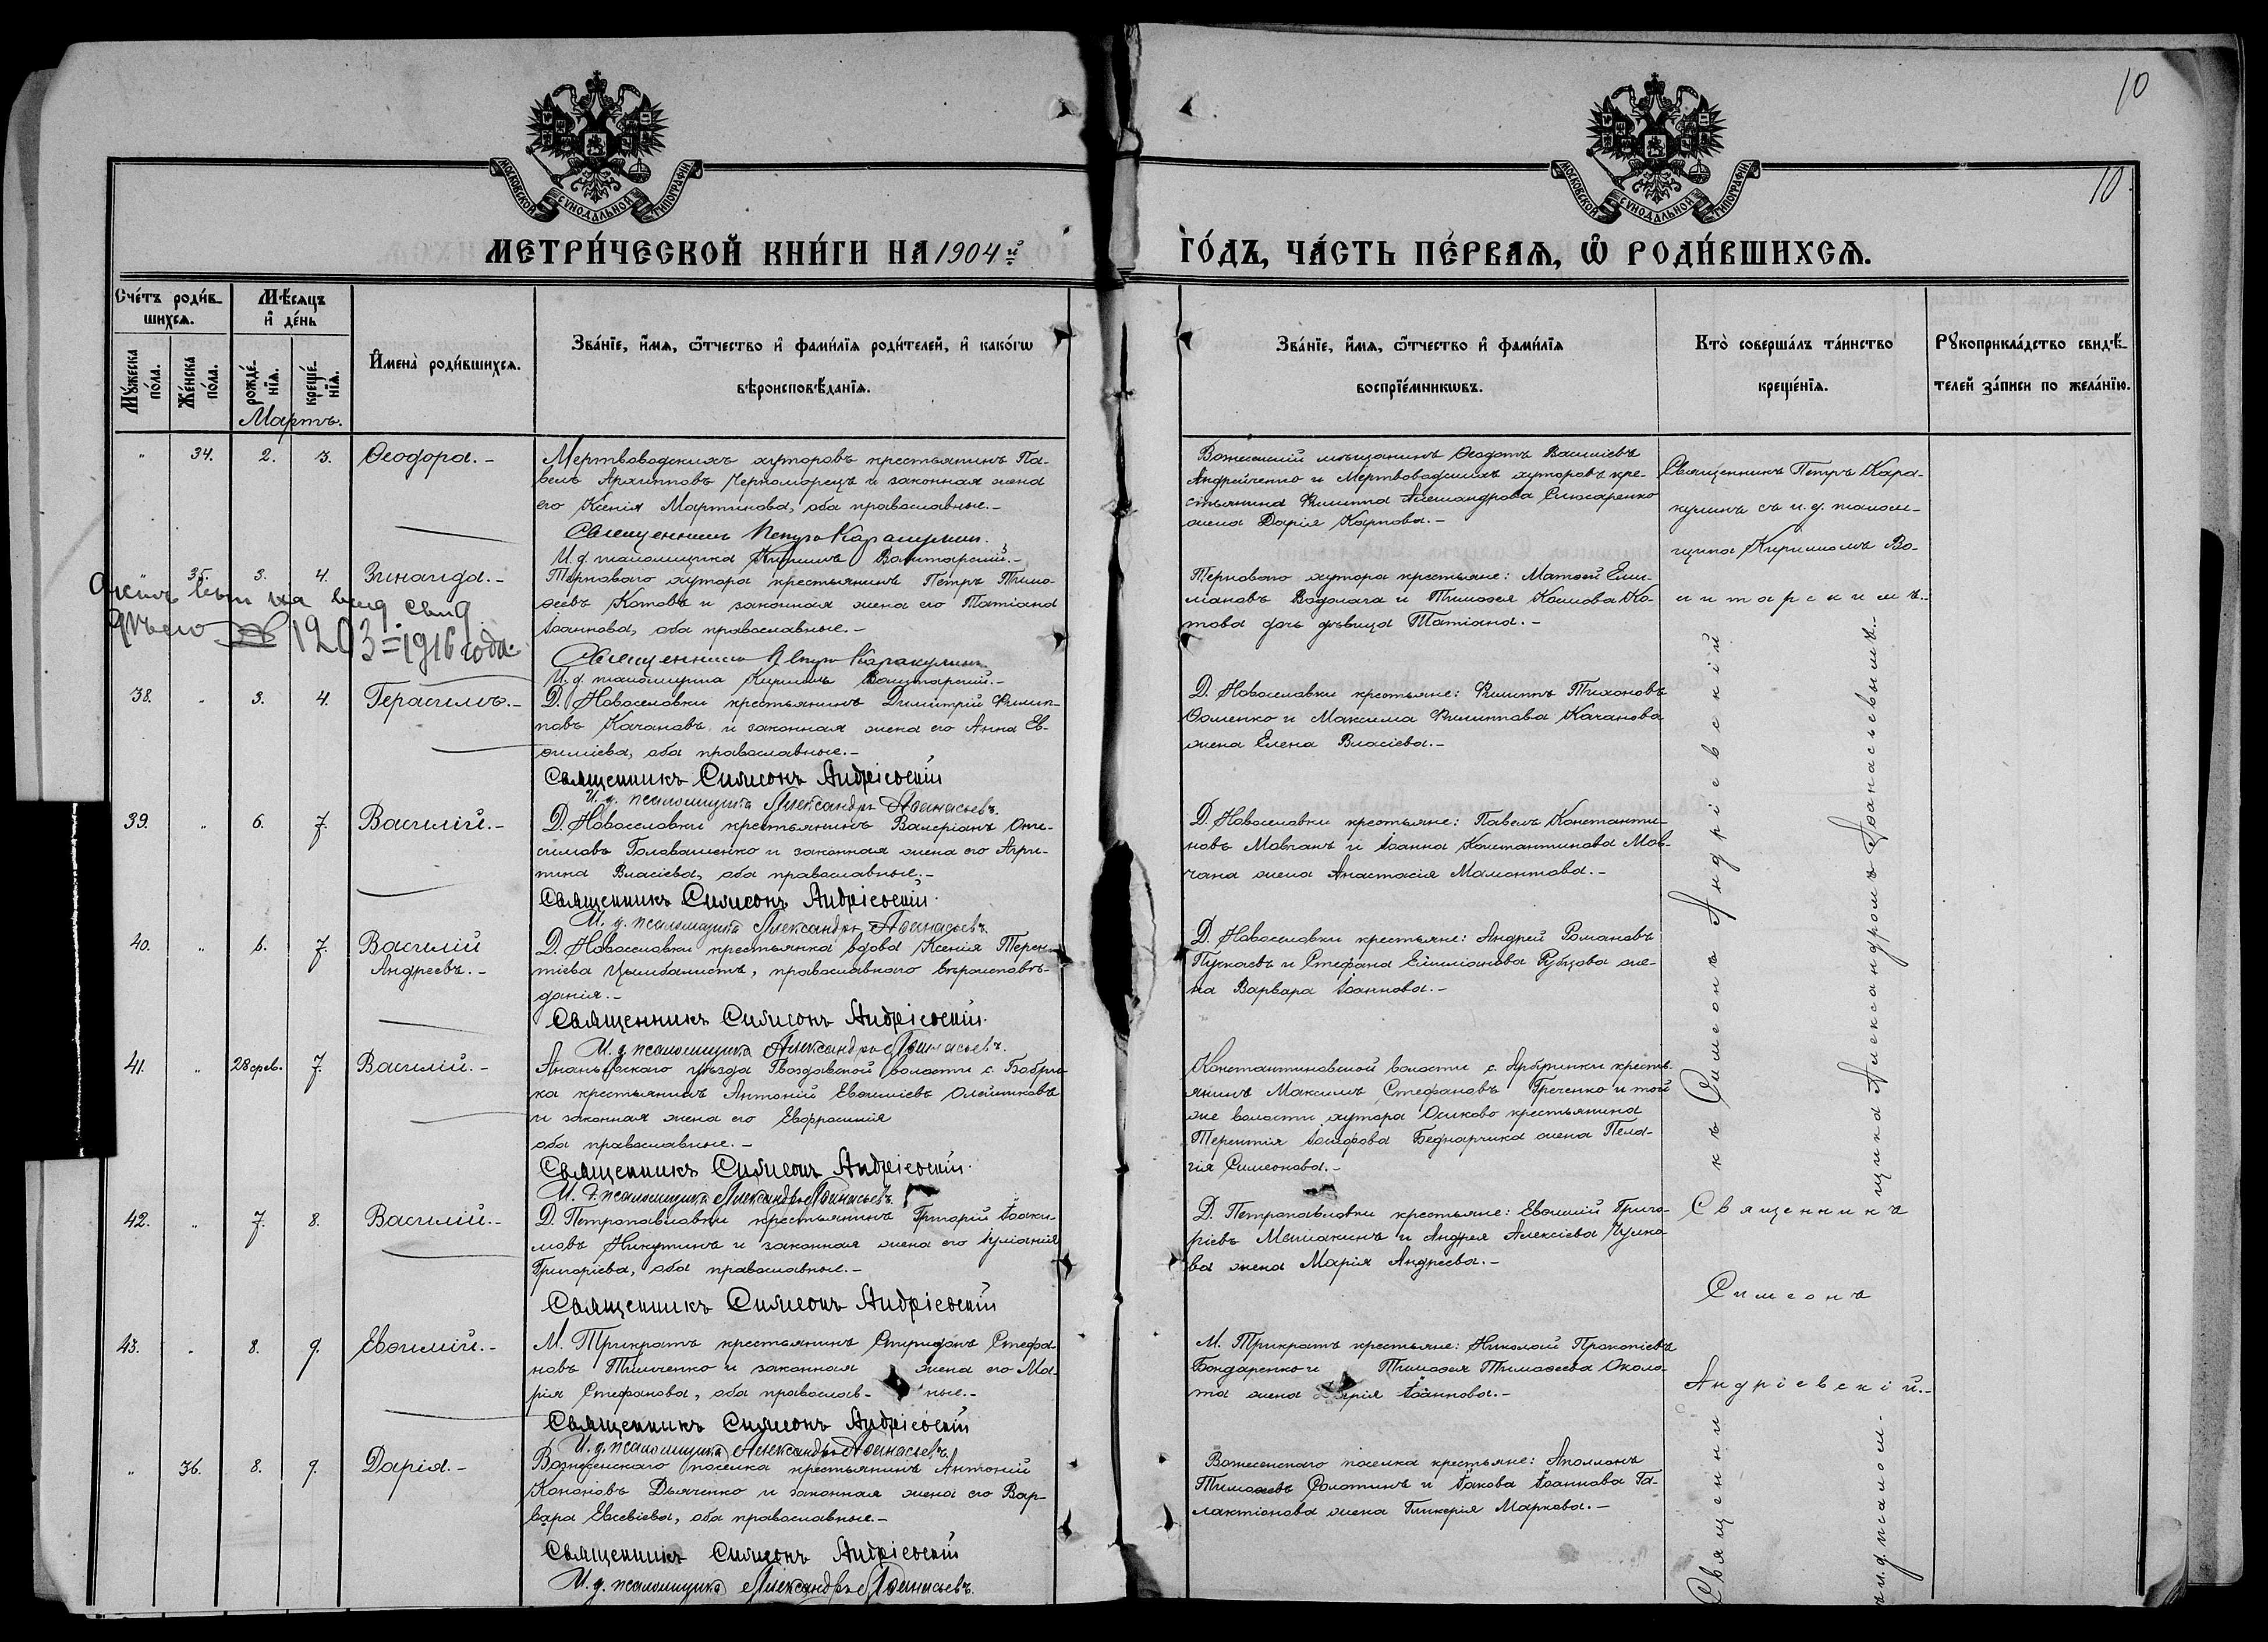 10
10
МОСКОВСКОЙ СУНОДАЛЬНОЙ ТИПОГРАФІИ
МОСКОВСКОЙ СУНОДАЛЬНОЙ ТИПОГРАФІИ
МЕТРИ́ЧЕСКОЙ КНИ́ГИ НА 1904 й
ГО́ДЪ, ЧА́СТЬ ПЕ́РВАѦ, Ѡ РОДИ́ВШИХСѦ.
Сче́тъ роди́в-
шихсѧ.
Мꙋ́жеска
по́ла.
Же́нска
по́ла.
Мѣ́сѧцъ
и҆ де́нь
рожде́-
нїѧ.
креще́-
нїѧ.
Мартъ.
И҆мена̀ роди́вшихсѧ.
Зва́нїе, и҆́мѧ, ѻ҆́тчество и҆ фами́лїѧ роди́телей, и҆ како́гѡ
вѣроисповѣ́данїѧ.
Зва́нїе, и҆́мѧ, ѻ҆́тчество и҆ фами́лїѧ
воспрїе́мникѡвъ.
Кто̀ соверша́лъ та́инство
креще́нїѧ.
Рꙋкоприкла́дство свидѣ́-
телей за́писи по жела́нїю.
" 34. 2. 3. Ѳеодора.-
Мертвоводскихъ хуторовъ крестьянинъ Па-
велъ Архипповъ Черноморецъ и законная жена
его Ксенія Мартинова, оба православные.-
Священникъ Петръ Каракулинъ.
И. д. псаломщика Кириллъ Воитарскій.-
Вознесенскій мѣщанинъ Ѳеодотъ Василіевъ
Андрейченко и Мертвоводскихъ хуторовъ кре-
стьянина Филиппа Александрова Слюсаренко
жена Дарія Карпова.-
Священникъ Петръ Кара-
кулинъ съ и. д. псалом-
щика Кирилломъ Во-
итарскимъ.-
35. 3. 4. Зинаида.-
вып на выд. свид
№ 1203=1916 года.
Тернового хутора крестьянинъ Петръ Тимо-
ѳеевъ Котовъ и законная жена его Татіана
Іоаннова, оба православные.-
Священникъ Петръ Каракулинъ.
И. д. псаломщика Кириллъ Воитарскій.-
Тернового хутора крестьяне: Матѳей Еми-
ліановъ Водолага и Тимоѳея Ко-
това дочь дѣвица Татіана.-
38. " 3. 4. Герасимъ.-
Д. Новоселовки крестьянинъ Димитрій Филип-
повъ Качановъ и законная жена его Анна Ев-
ѳиміева, оба православные.-
Священникъ Симеонъ Андріевскій
И. д. псаломщика Александръ Аѳанасьевъ.
Д. Новоселовки крестьяне: Филиппъ Тихоновъ
Ѳоменко и Максима Филиппова Качанова
жена Елена Власіева.-
39. " 6. 7. Василій.-
Д. Новоселовки крестьянинъ Валеріанъ Они-
симовъ Головашенко и законная жена его Агри-
пина Власіева, оба православные.-
Священникъ Симеонъ Андріевскій.
И. д. псаломщика Александръ Аѳанасьевъ.
Д. Новоселовки крестьяне: Павелъ Константи-
новъ Мовчанъ и Іоанна Константинова Мов-
чана жена Анастасія Мамонтова.-
40. " 6. 7. Василій
Андреевъ.-
Д. Новоселовки крестьянка вдова Ксенія Терен-
тіева Цымбалистъ, православнаго вѣроисповѣ-
данія.-
Священникъ Симеонъ Андріевскій.
И. д. псаломщика Александръ Аѳанасьевъ.
Д. Новоселовки крестьяне: Андрей Романовъ
Пугачевъ и Стефана Емиліанова Рубцова же-
на Варвара Іоаннова.-
41. " 28 февр. 7. Василій.-
Ананьевскаго уѣзда Гвоздовской волости с. Бобри-
ка крестьянинъ Антоній Евѳиміевъ Олейниковъ
и законная жена его Евфросинія
оба православные.-
Священникъ Симеонъ Андріевскій.
И. д. псаломщика Александръ Аѳанасьевъ.
Константиновской волости с. Арбузинки кресть-
янинъ Максимъ Стефановъ Греченко и той
же волости хутора Осиково крестьянина
Терентія Іосифова Беднарчика жена Пела-
гія Симеонова.-
42. " 7. 8. Василій.-
Д. Петропавловки крестьянинъ Григорій Іоаки-
мовъ Никитинъ и законная жена его Іуліанія
Григоріева, оба православные.-
Священникъ Симеонъ Андріевскій
Д. Петропавловки крестьяне: Евѳимій Григо-
ріевъ Малакинъ и Андрея Алексіева Чулко-
ва жена Марія Андреева.-
Священникъ
Симеонъ
Андріевскій.-
43. " 8. 9. Евѳимій.-
М. Трикратъ крестьянинъ Спиридонъ Стефа-
новъ Тимченко и законная жена его Ма-
рія Стефанова, оба православ- ные.-
Священникъ Симеонъ Андріевскій
И. д. псаломщика Александръ Аѳанасьевъ.
М. Трикратъ крестьяне: Николай Прокопіевъ
Бондаренко и Тимоѳея Тимоѳеева Околе-
та жена Іоаннова.-
" 36. 8. 9. Дарія.-
Вознесенскаго поселка крестьянинъ Антоній
Кононовъ Дьяченко и законная жена его Вар-
вара Евсевіева, оба православные.-
Священникъ Симеонъ Андріевскій
И. д. псаломщика Александръ Аѳанасьевъ.
Вознесенскаго поселка крестьяне: Аполлонъ
Тимоѳеевъ Солотинъ и Іакова Іоаннова Га-
лактіонова жена Гликерія Маркова.-
Священникъ Симеонъ Андріевскій
и. д. псаломщика Александромъ Аѳанасьевымъ.-
Священни
ъ и. д. псалом-